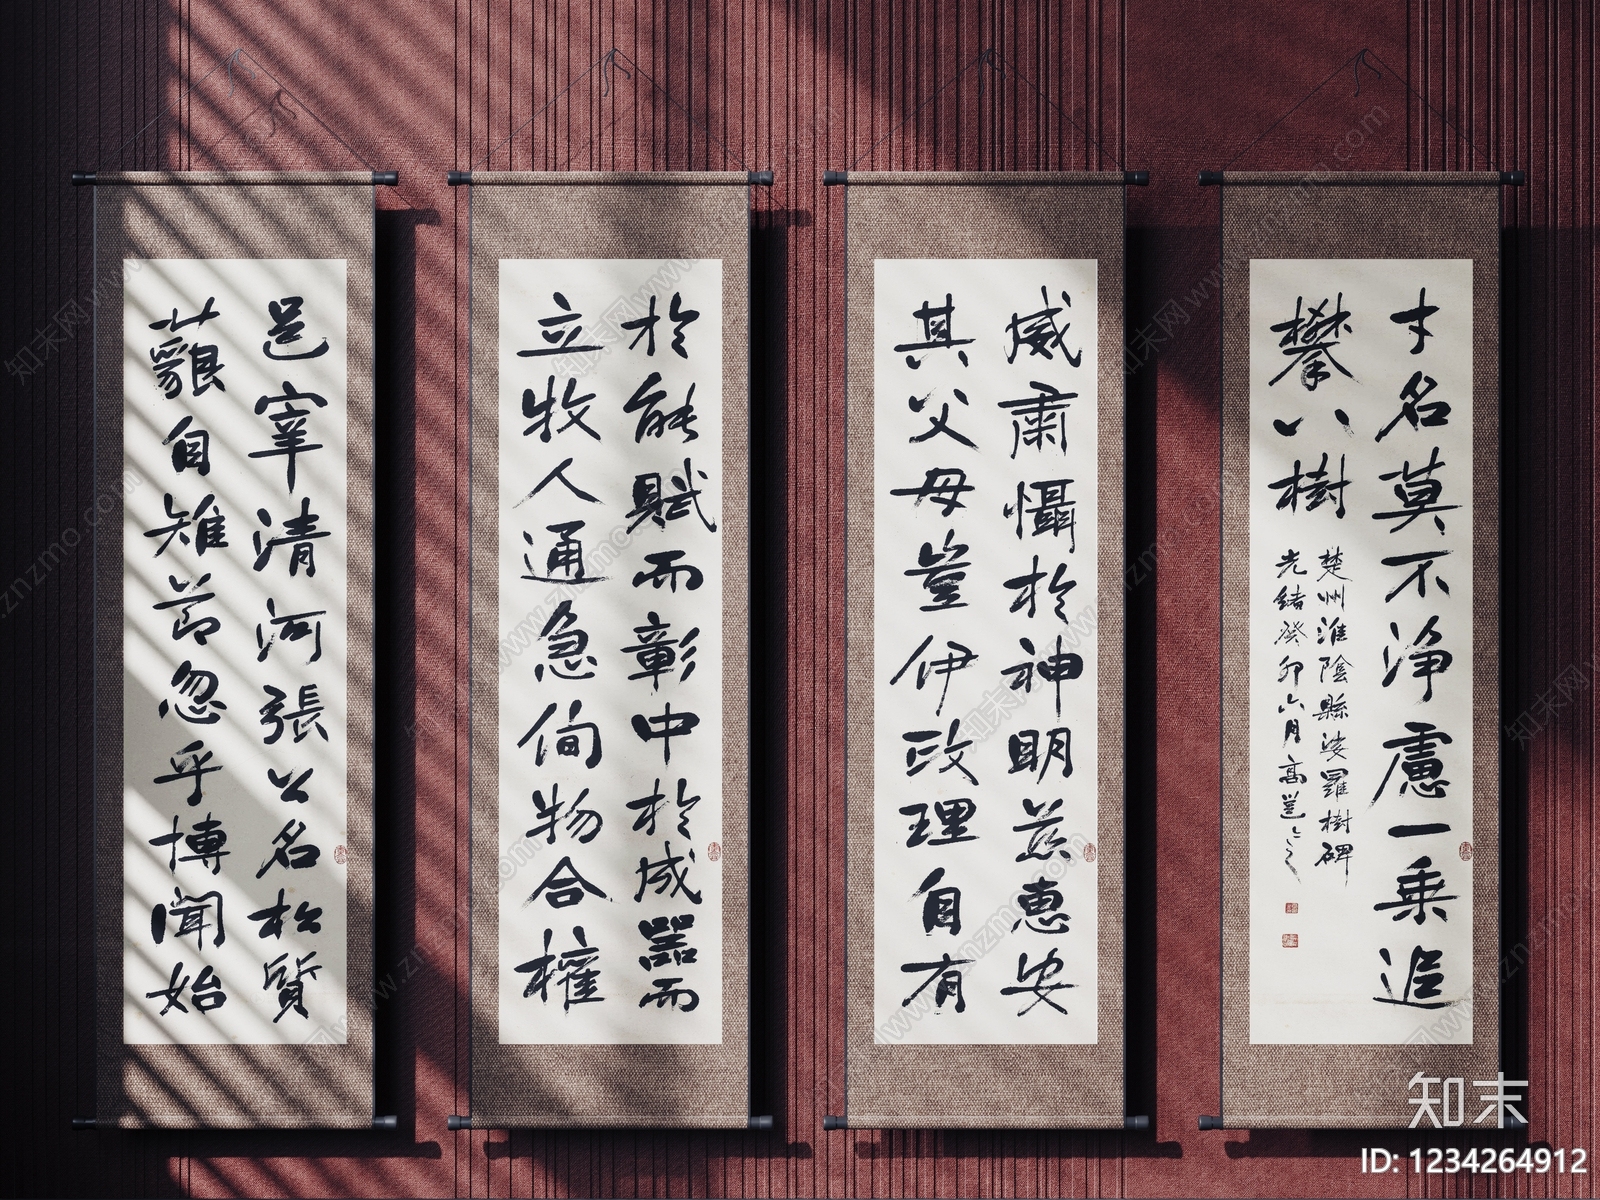 邑宰清河張公名松質
藐自雉節忽乎博聞始
於能賦而彰中於成器而
立牧人通急侚物合權
威肅懾於神明慈惠安
其父母豈伊政理自有
才名莫不淨慮一乘追
攀八樹
楚州淮陰縣娑羅樹碑
光緒癸卯六月高邕之
知末
ID: 1234264912
知末网www.znzmo.com